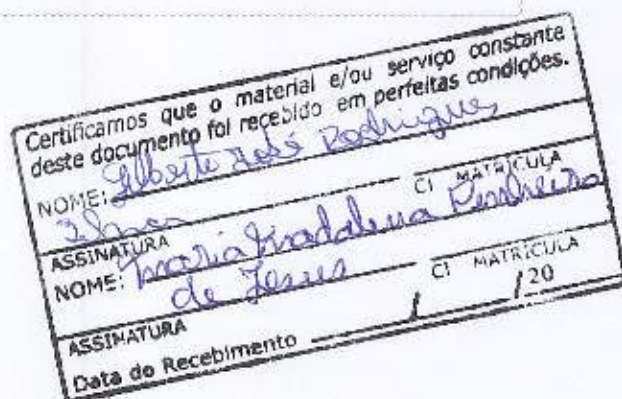 Certificamos que o material e/ou serviço constante
deste documento foi recebido em perfeitas condições.
NOME: Gilberto José Rodrigues
ASSINATURA CI MATRÍCULA
NOME: Maria Madalena Pinheiro
de Jesus
ASSINATURA CI MATRÍCULA
Data do Recebimento / /20